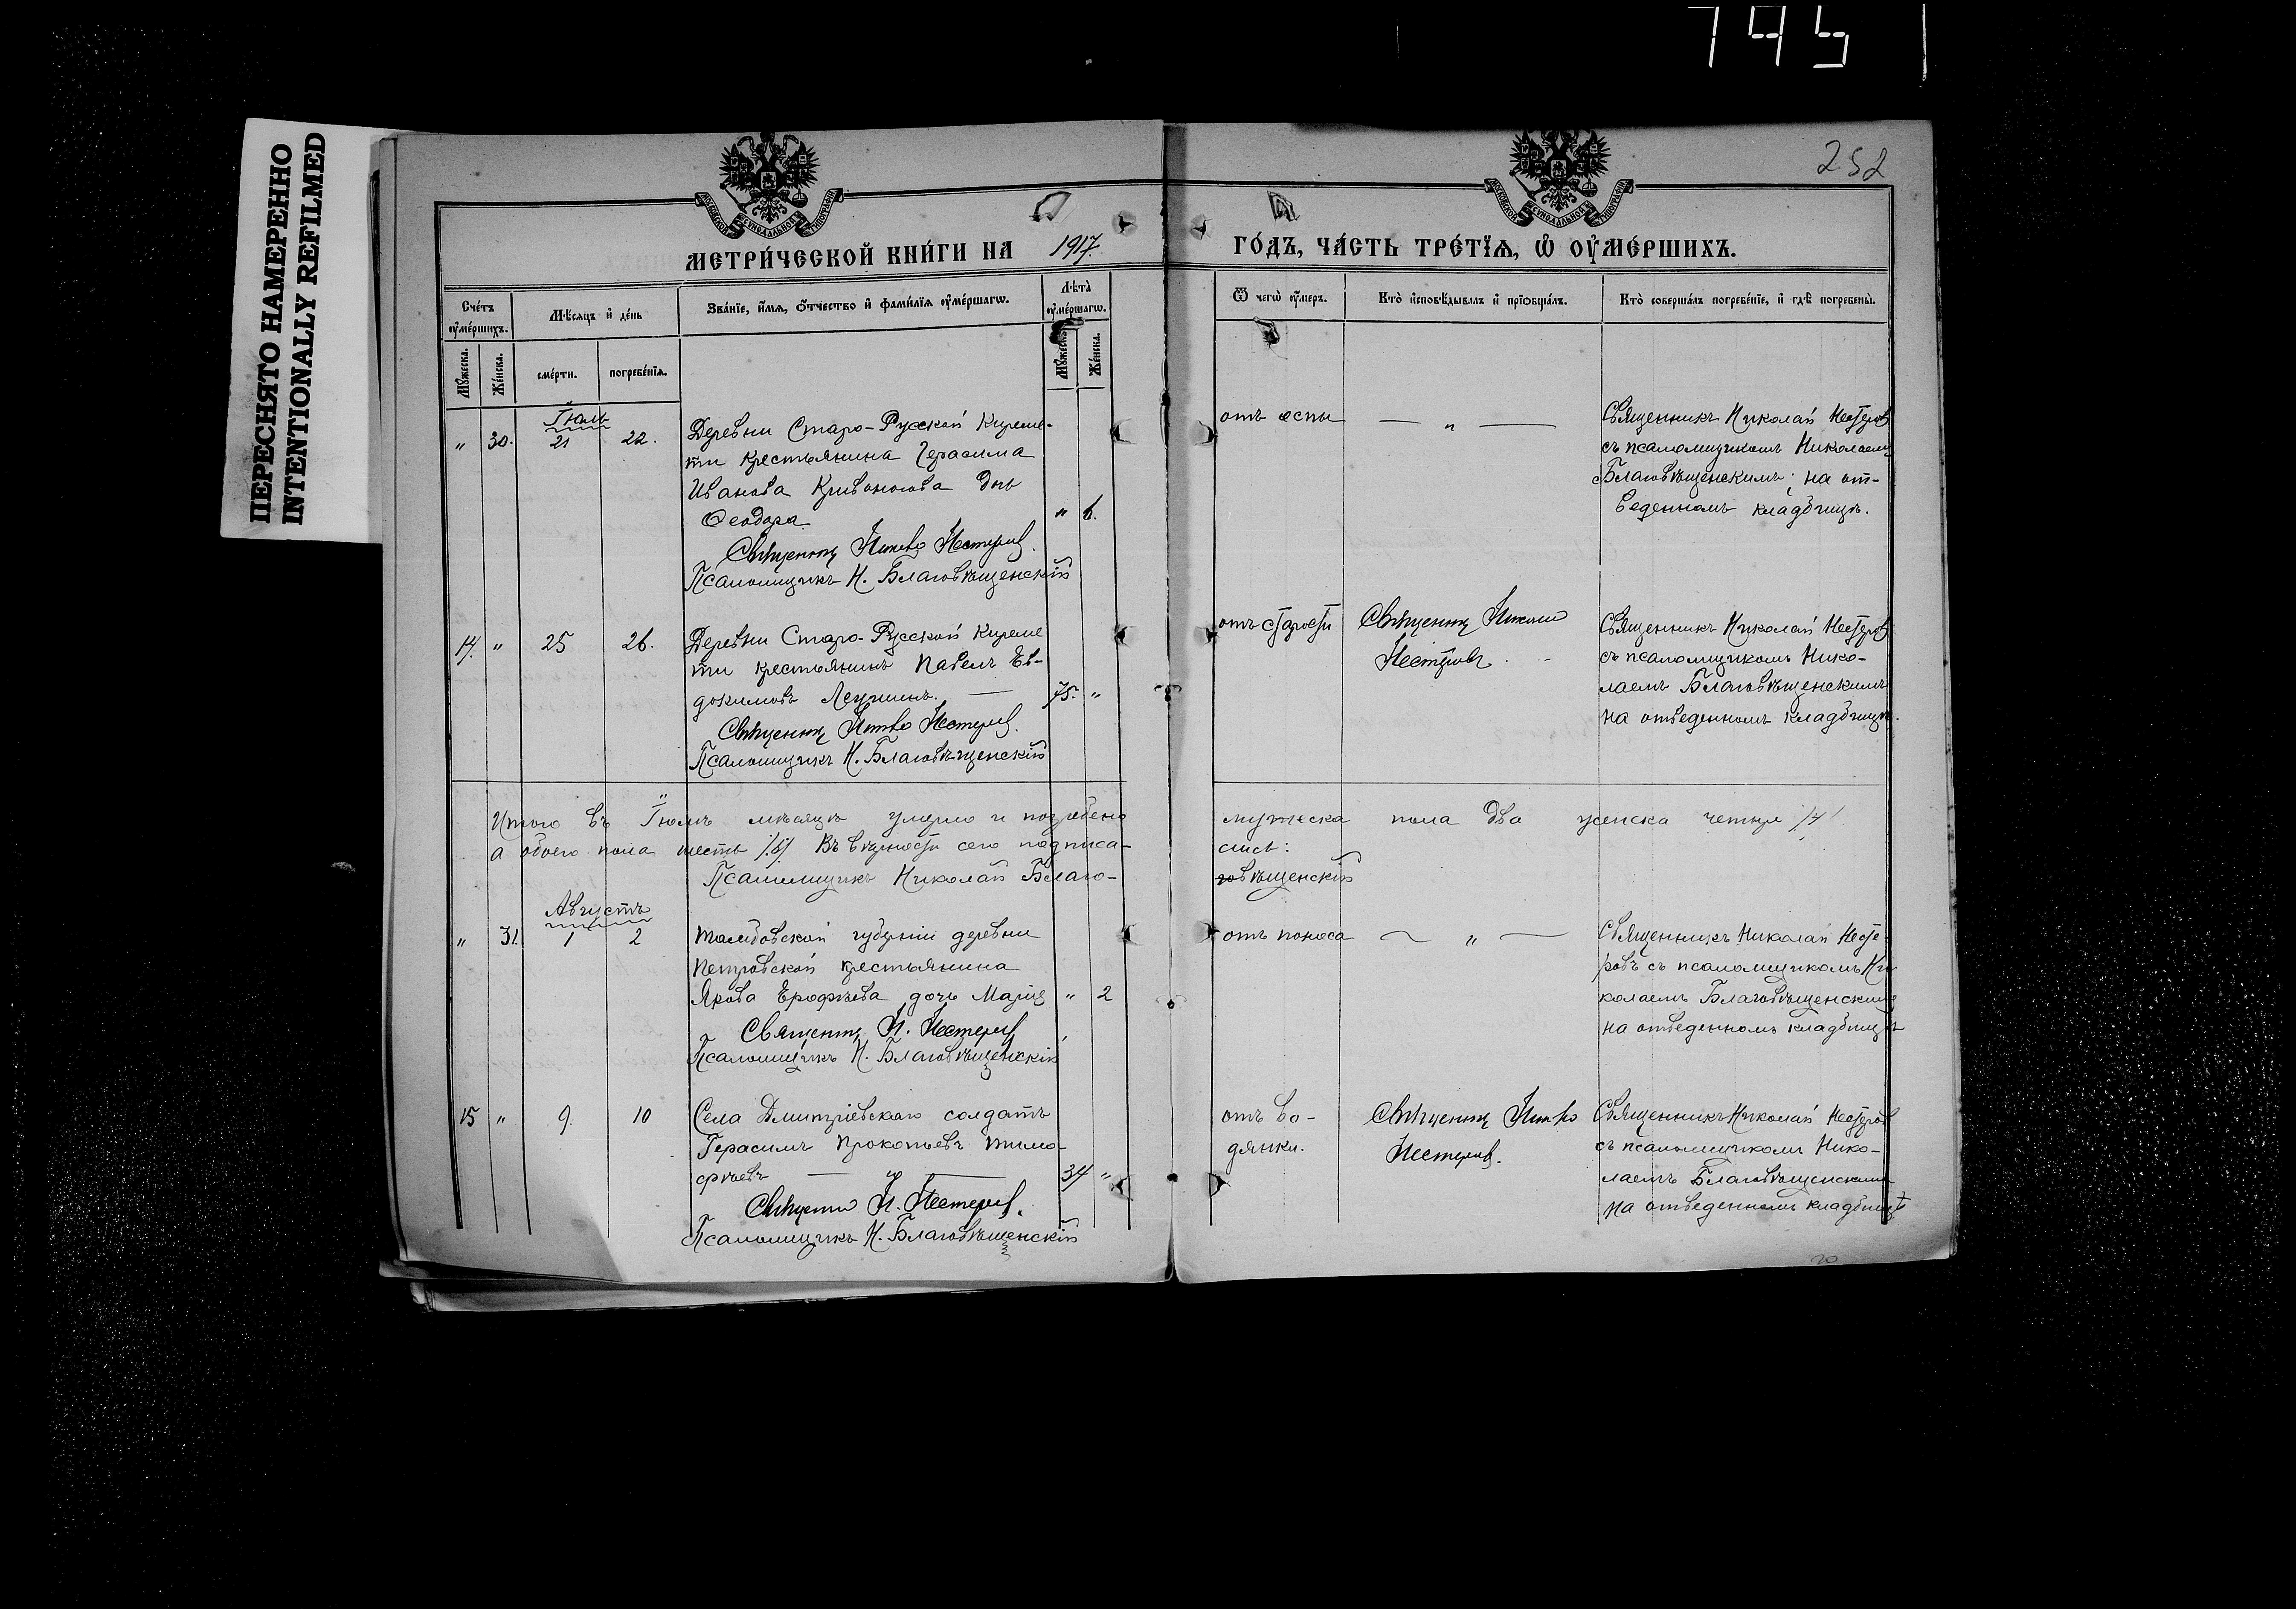 745
ПЕРЕСНЯТО НАМЕРЕННО
INTENTIONALLY REFILMED
252
МОСКОВСКОЙ СУНОДАЛЬНОЙ ТИПОГРАФІИ
МОСКОВСКОЙ СУНОДАЛЬНОЙ ТИПОГРАФІИ
МЕТРИ́ЧЕСКОЙ КНИ́ГИ НА 1917. ГО́ДЪ, ЧА́СТЬ ТРЕ́ТЇѦ, Ѡ҆ ОУ҆МЕ́РШИХЪ.
Сче́тъ оу҆ме́ршихъ.
Мѣ́сяцъ и҆ де́нь
Зва́нїе, и҆́мѧ, ѻ҆́тчество и҆ фами́лїѧ оу҆ме́ршагѡ.
Лѣ́та̀ оу҆ме́ршагѡ.
Ѿ чегѡ̀ оу҆́меръ.
Кто̀ и҆сповѣ́дывалъ и҆ прїѡбща́лъ.
Кто̀ соверша́лъ погребе́нїе, и҆ гдѣ̀ погребены̀.
Мꙋ́жеска.
Же́нска.
сме́рти.
погребе́нїѧ.
Мꙋ́жеска
Же́нска.
Іюль
" 30. 21 22. Деревни Старо-Русской Киреме-
ти крестьянина Герасима
Иванова Кривоногова дчь
Ѳеодора " 6.
Священникъ Николай Нестеровъ.
Псаломщикъ Н. Благовѣщенскій
отъ оспы — " —
Священникъ Николай Нестеровъ
съ псаломщикомъ Николаемъ
Благовѣщенскимъ; на от-
веденномъ кладбищѣ.
14. " 25 26. Деревни Старо-Русской Киреме
ти крестьянинъ Павелъ Ев-
докимовъ — 75. "
Священникъ Николай Нестеровъ.
Псаломщикъ Н. Благовѣщенскій
отъ старости
Священникъ Николай
Нестеровъ.
Священникъ Николай Нестеровъ
съ псаломщикомъ Нико-
лаемъ Благовѣщенскимъ
на отведенномъ кладбищѣ.
Итого въ Іюлѣ мѣсяцѣ умерло и погребено мужеска пола два женска четыре /4/
а обоего пола шесть /.6/. Въ вѣрности сего подписа- лись:
Псаломщикъ Николай Благо- говѣщенскій
Августъ
" 31. 1 2 Тамбовской губерніи деревни
Петровской крестьянина
Якова Ерофѣева дочь Марія " 2
Священникъ Н. Нестеровъ
Псаломщикъ Н. Благовѣщенскій
отъ поноса — " —
Священникъ Николай Несте-
ровъ съ псаломщикомъ Ни
колаемъ Благовѣщенскимъ
на отведенномъ кладбищѣ
15 " 9. 10 Села Дмитріевскаго солдатъ
Герасимъ Прокопьевъ Тимо-
фѣевъ — 34 "
Священникъ Н. Нестеровъ.
Псаломщикъ Н. Благовѣщенскій
отъ во-
дянки.
Священникъ Николай
Нестеровъ.
Священникъ Николай Нестеровъ
съ псаломщикомъ Нико-
лаемъ Благовѣщенскимъ
на отведенномъ кладбищѣ